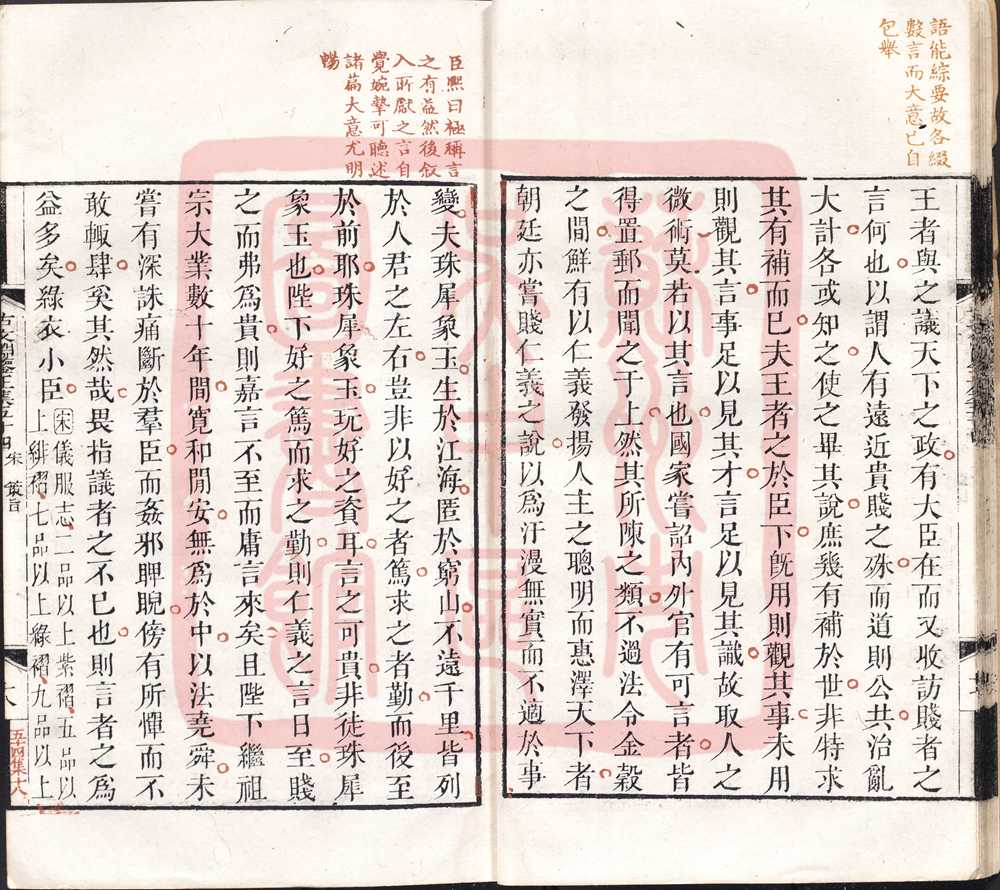 語能綜要故各綴
數言而大意已自
包舉
王者與之議天下之政有大臣在而又收訪賤者之
言何也以謂人有遠近貴賤之殊而道則公共治亂
大計各或知之使之畢其說庶幾有補於世非特求
其有補而已夫王者之於臣下旣用則觀其事未用
則觀其言事足以見其才言足以見其識故取人之
微術莫若以其言也國家嘗詔內外官有可言者皆
得置郵而聞之于上然其所陳之類不過法令金穀
之間鮮有以仁義發揚人主之聰明而惠澤天下者
朝廷亦嘗賤仁義之說以爲汗漫無實而不適於事
臣熙曰極稱言
之有益然後敘
入所獻之言自
覺婉摯可聽述
諸篇大意尤明
暢
變夫珠犀象玉生於江海匿於窮山不遠千里皆列
於人君之左右豈非以好之者篤求之者勤而後至
於前耶珠犀象玉玩好之資耳言之可貴非徒珠犀
象玉也陛下好之篤而求之勤則仁義之言日至賤
之而弗爲貴則嘉言不至而庸言來矣且陛下繼祖
宗大業數十年間寬和閒安無爲於中以法堯舜未
嘗有深誅痛斷於羣臣而姦邪睥睨傍有所憚而不
敢輒肆奚其然哉畏指議者之不已也則言者之爲
益多矣綠衣小臣
宋儀服志三品以上紫褶五品以
上緋褶七品以上綠褶九品以上
古文淵鑒正集五十四 宋 策言
十八
五十四集十八